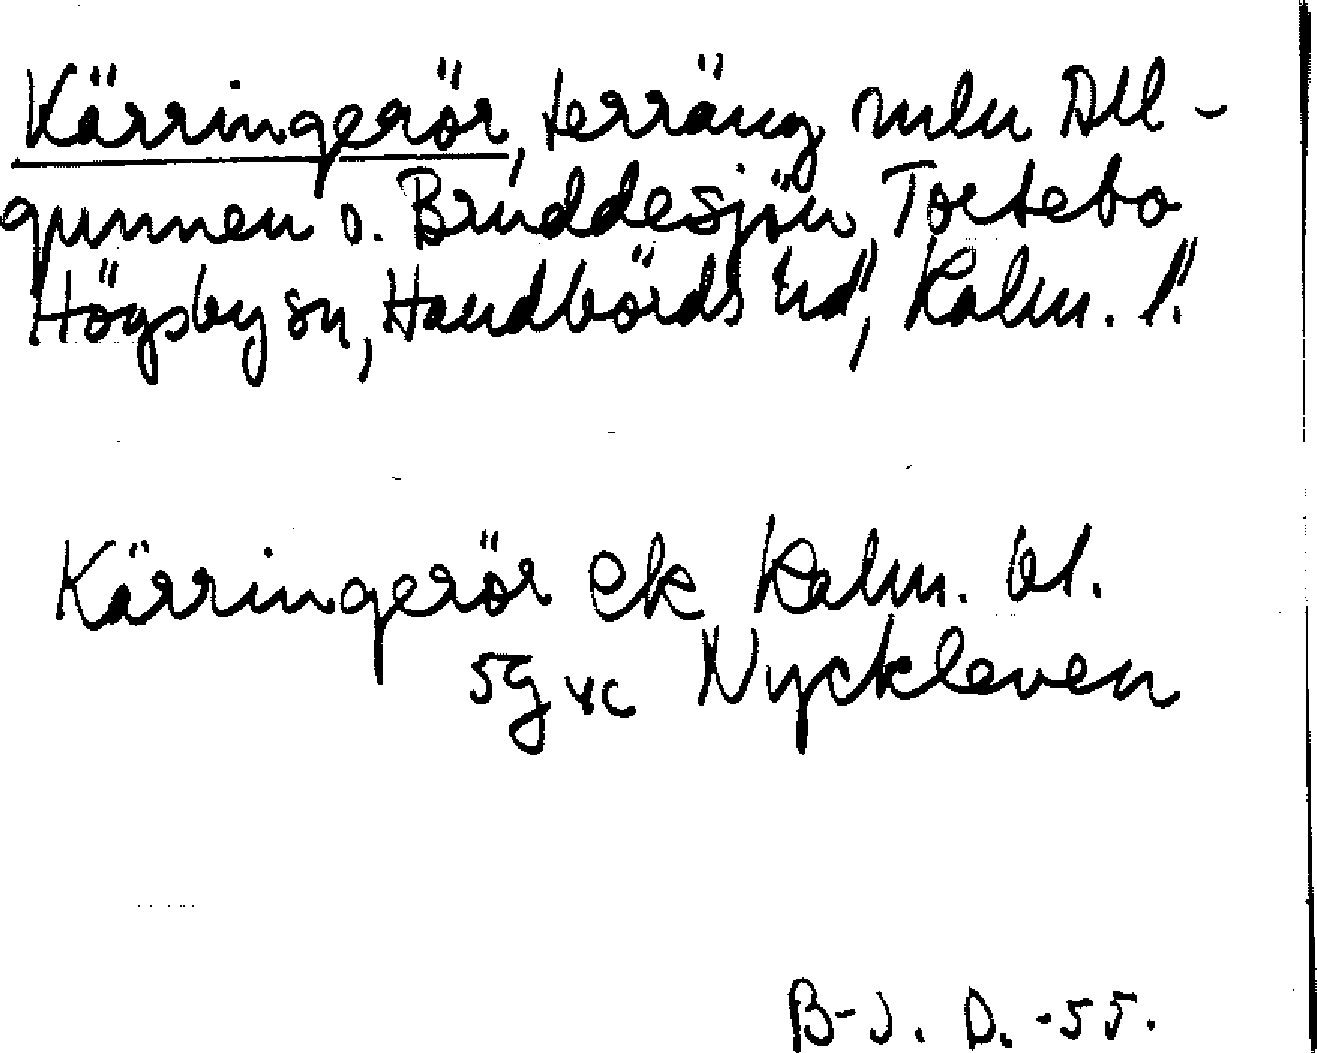 Kärringerör, terräng mln All-
gunnen o. Bruddesjön, Tortebo
Högsby sn, Handbörds hd, Kalm. l.
Kärringerör ek Kalm. bl.
5g vc Nyckleven
B-J. D. -55.